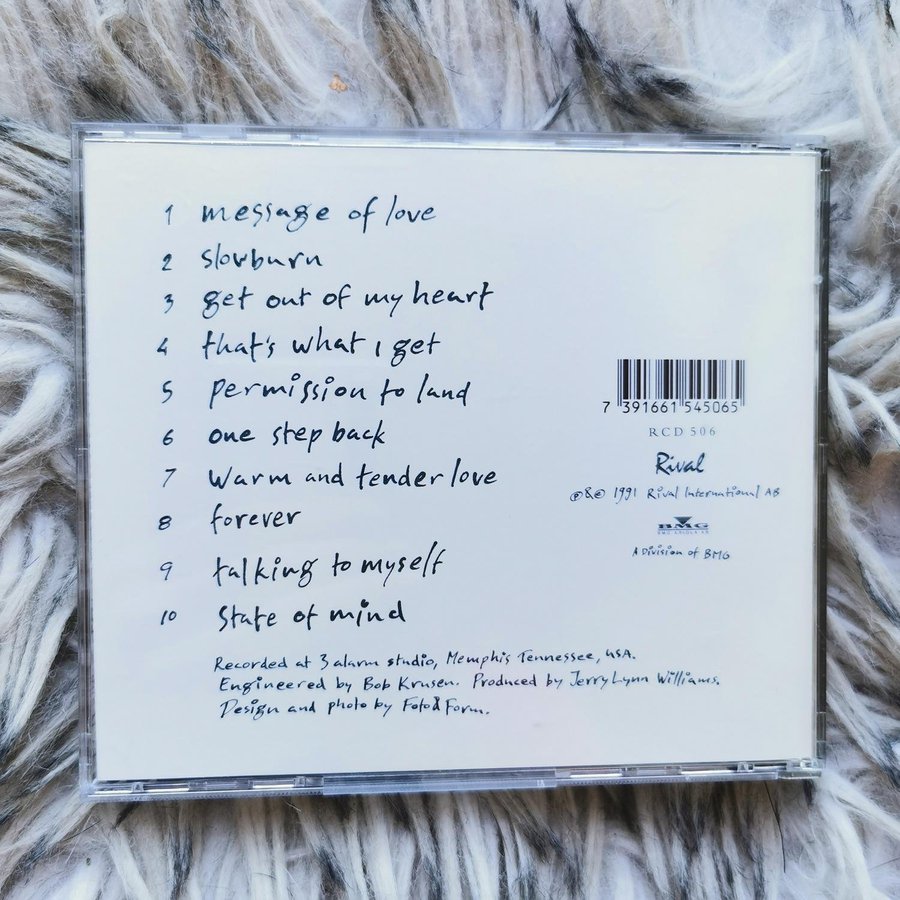 1 message of love
2 slowburn
3 get out of my heart
4 that's what I get
5 permission to land
6 one step back
7 Warm and tender love
8 forever
9 talking to myself
10 State of mind
Recorded at 3 alarm studio, Memphis Tennessee, USA.
Engineered by Bob Krusen. Produced by Jerry Lynn Williams.
Design and photo by Foto & Form.
7 391661 545065
RCD 506
Rival
℗&© 1991 Rival International AB
BMG
BMG ARIOLA AB
A Division of BMG